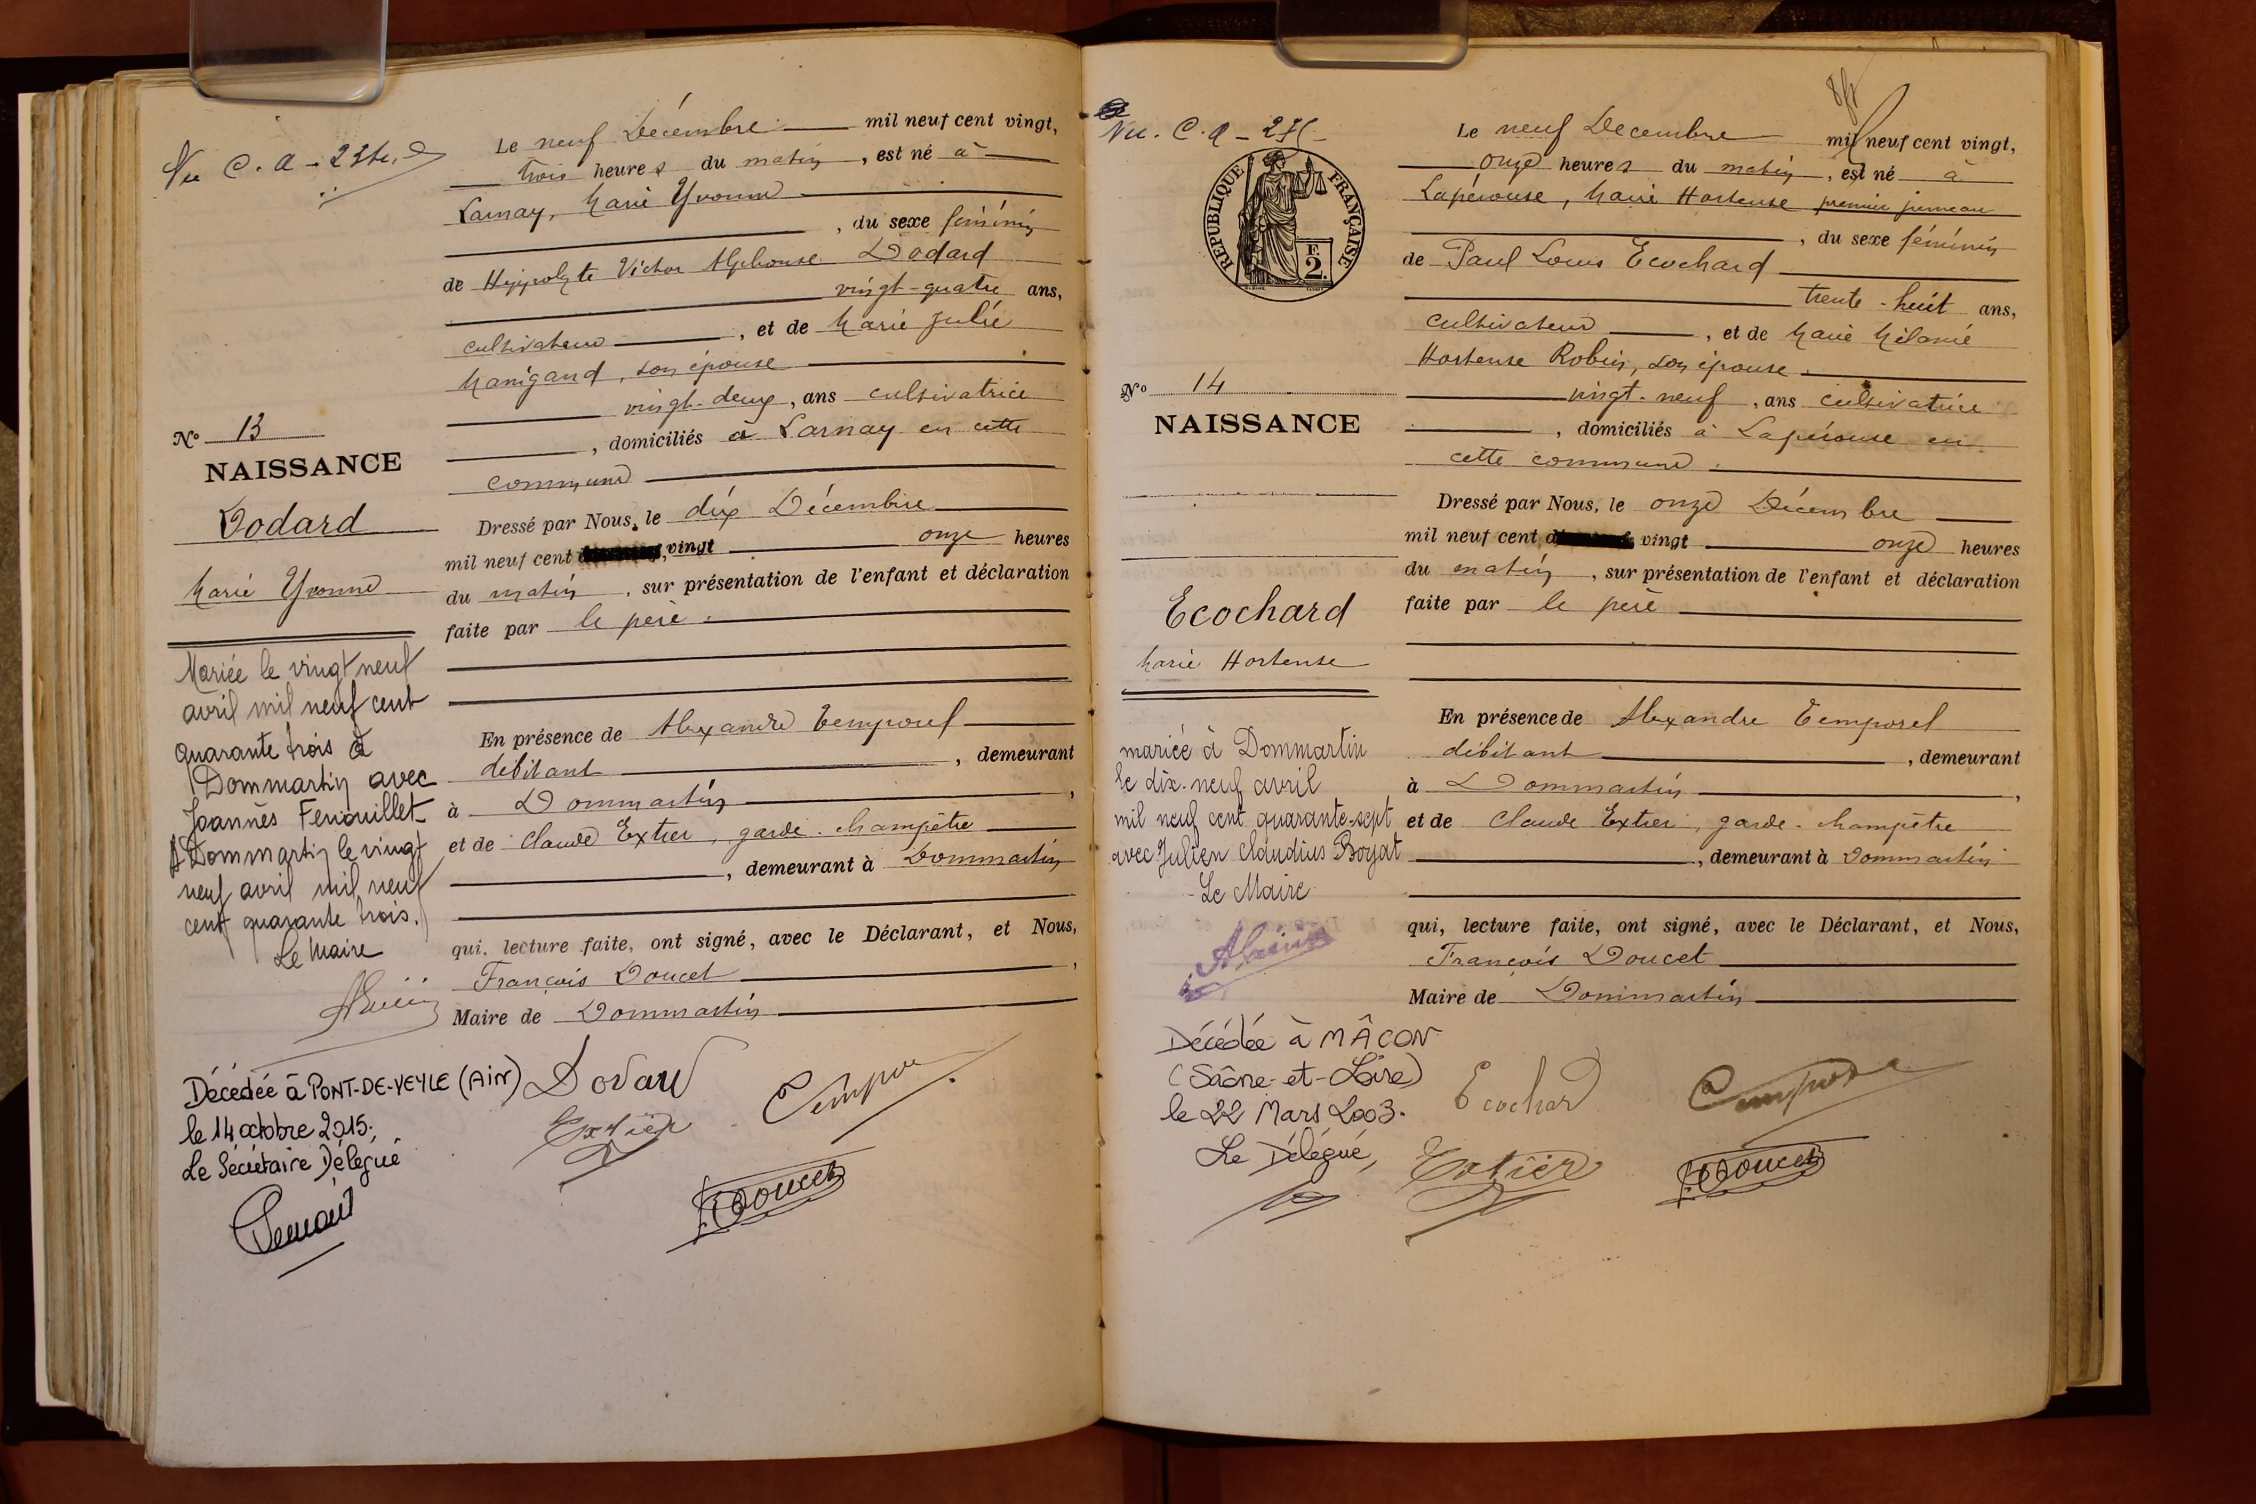 Vu C. A
Le neuf Décembre mil neuf cent vingt,
trois heures du matin, est né à
Larnay, Marie Yvonne
, du sexe féminin
de Hippolyte Victor Alphonse Dodard
vingt-quatre ans,
cultivateur, et de Marie Julie
Manigand, son épouse
vingt-deux, ans cultivatrice
, domiciliés à Larnay en cette
commune
Dressé par Nous, le dix Décembre
mil neuf cent vingt onze heures
du matin, sur présentation de l'enfant et déclaration
faite par le père.
En présence de Alexandre Temporel
débitant, demeurant
à Dommartin,
et de Claude Extier, garde-champêtre
, demeurant à Dommartin
qui, lecture faite, ont signé, avec le Déclarant, et Nous,
François Doucet,
Maire de Dommartin
Nº 13
NAISSANCE
Dodard
Marie Yvonne
Mariée le vingt neuf
avril mil neuf cent
quarante trois à
Dommartin avec
Joannès Fenouillet
A Dommartin le vingt
neuf avril mil neuf
cent quarante trois.
Le Maire
Décédée à PONT-DE-VEYLE (Ain)
le 14 octobre 2015.
Le Secrétaire Délégué
Dodard
Extier
Doucet
Vu. C. A
RÉPUBLIQUE FRANÇAISE
F.
2.
Le neuf Decembre mil neuf cent vingt,
onze heures du matin, est né à
Lapérouse, Marie Hortense premier jumeau
, du sexe féminin
de Paul Louis Ecochard
trente-huit ans,
cultivateur, et de Marie Mélanie
Hortense Robin, son épouse.
vingt-neuf, ans cultivatrice
, domiciliés à Lapérouse en
cette commune.
Dressé par Nous, le onze Décembre
mil neuf cent vingt onze heures
du matin, sur présentation de l'enfant et déclaration
faite par le père
En présence de Alexandre Temporel
débitant, demeurant
à Dommartin,
et de Claude Extier, garde-champêtre
, demeurant à Dommartin
qui, lecture faite, ont signé, avec le Déclarant, et Nous,
François Doucet
Maire de Dommartin
Nº 14
NAISSANCE
Ecochard
Marie Hortense
mariée à Dommartin
le dix-neuf avril
mil neuf cent quarante-sept
avec Julien Claudius Boyat
Le Maire
Décédée à MÂCON
(Saône-et-Loire)
le 22 Mars 2003.
Le Délégué,
Ecochard
Extier
Doucet